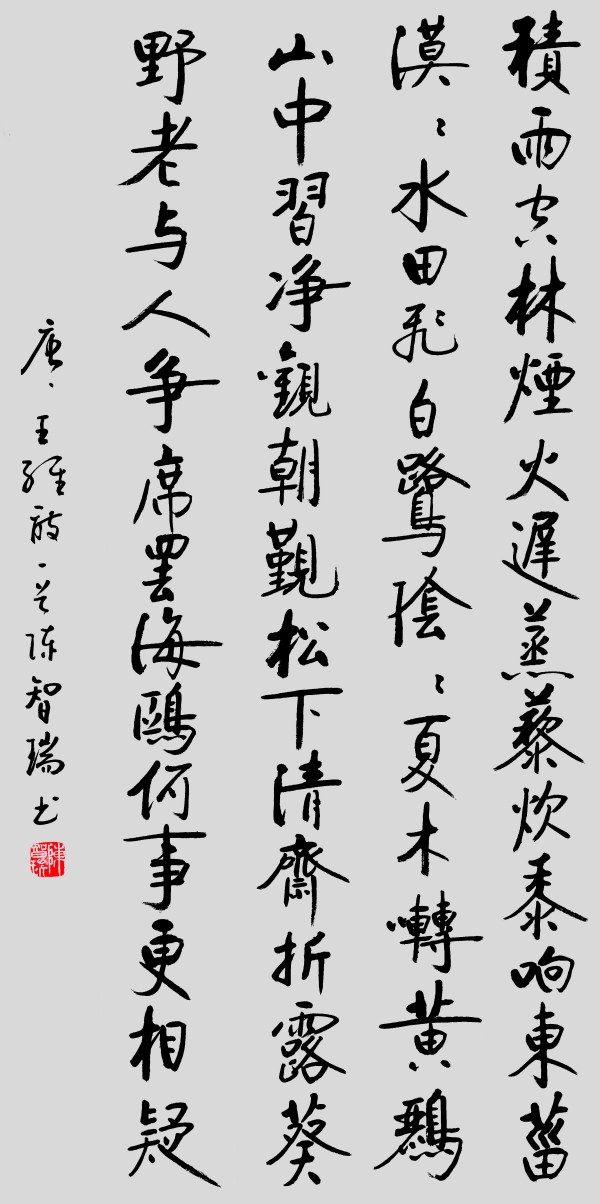 積雨空林煙火遲蒸藜炊黍响東菑
漠〻水田飛白鷺陰〻夏木囀黃鸝
山中習净觀朝覲松下清齋折露葵
野老与人争席罷海鷗何事更相疑
唐、王維詩一首陳智瑞书